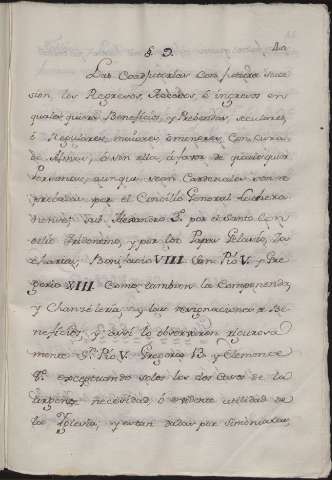 §. 9.
Las Coadjutorias con futura suce
sion, los Regresos, Accesos, è ingresos en
qualesquiera Beneficios, y Prebendas, seculares,
ó Regulares, maiores, ó menores, con cura
de Almas, ó sin ella, á favor de qualesquiera
Personas, aunque sean Cardenales, son re
probadas por el Concilio General Latera
nense, sub Alexandro 3º por el Santo Con
cilio Tridentino, y por los Papas Gelasio, Za
charias, Bonifacio VIII San Pio V. y Gre
gorio XIII. Como tambien la Componenda,
y Chanzeleria, en las resignaciones de Be
neficios, y assi lo observaron rigurosa
mente Sn. Pio V. Gregorio y Clemente
8º exceptuando solos los dos casos de la
urgente necesidad, ó evidente utilidad de
la Yglesia; y estan dadas por Simoniacas,